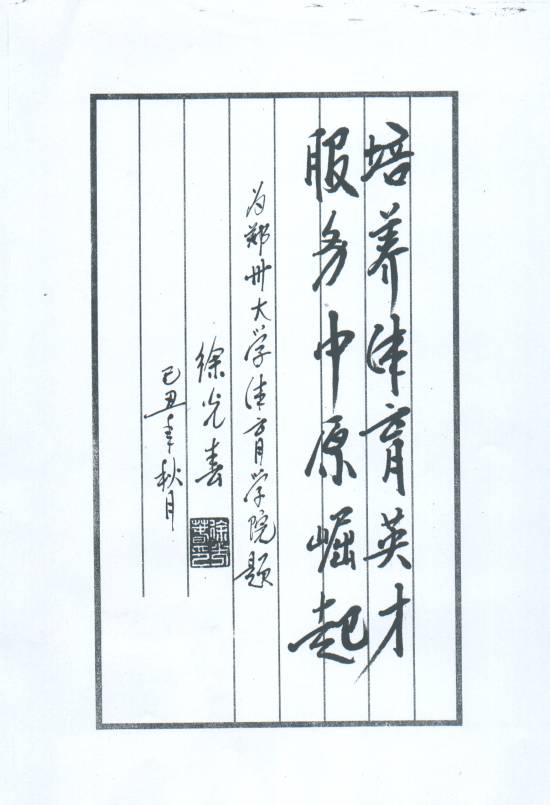 培养体育英才
服务中原崛起
为郑州大学体育学院题
徐光春
己丑年秋月
徐光春印